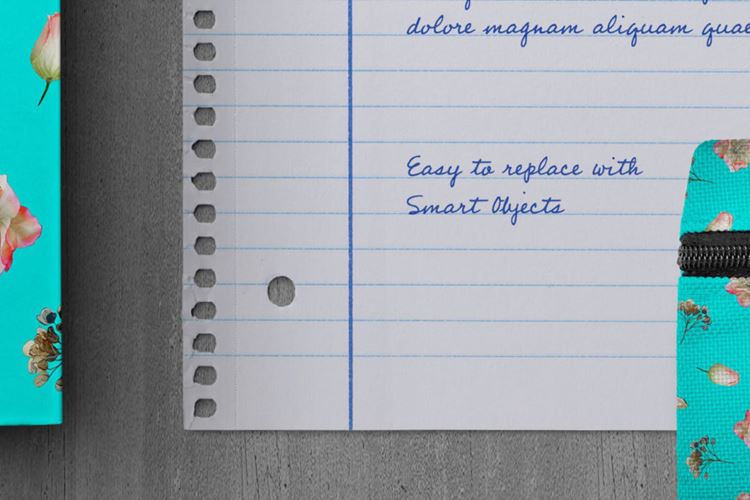 dolore magnam aliquam quae
Easy to replace with
Smart Objects